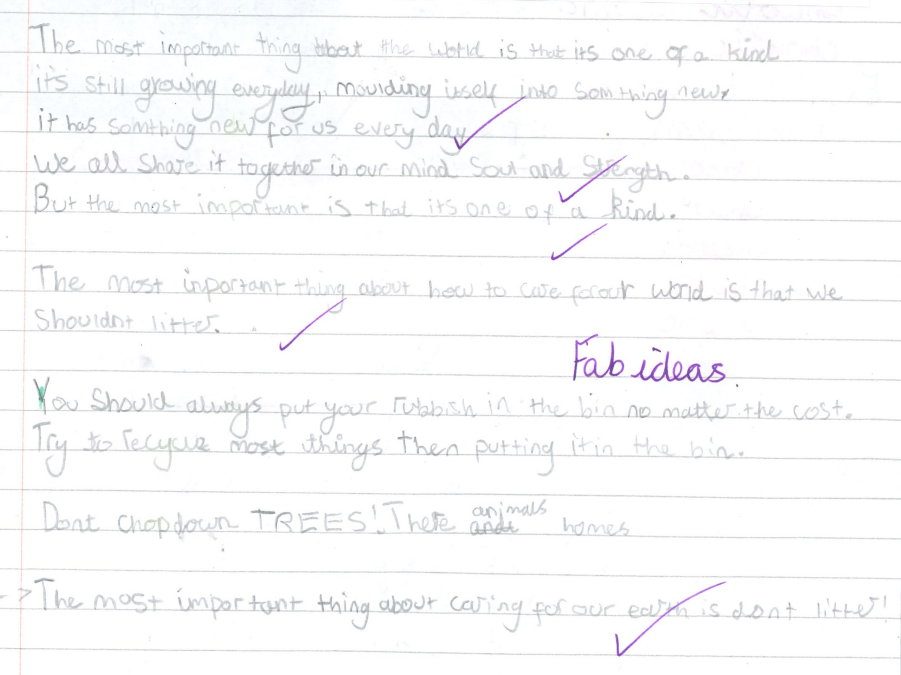 The most important thing about the world is that its one of a kind
it's still growing everyday, moulding itself into somthing new,
it has somthing new for us every day
We all share it together in our mind soul and strength.
But the most important is that its one of a kind.
The most inportant thing about how to care forour world is that we
Shouldnt litter.
Fab ideas.
You Should always put your rubbish in the bin no matter the cost.
Try to recycle most things then putting it in the bin.
Dont chop down TREES! There animals homes
The most important thing about caring for our earth is dont litter!